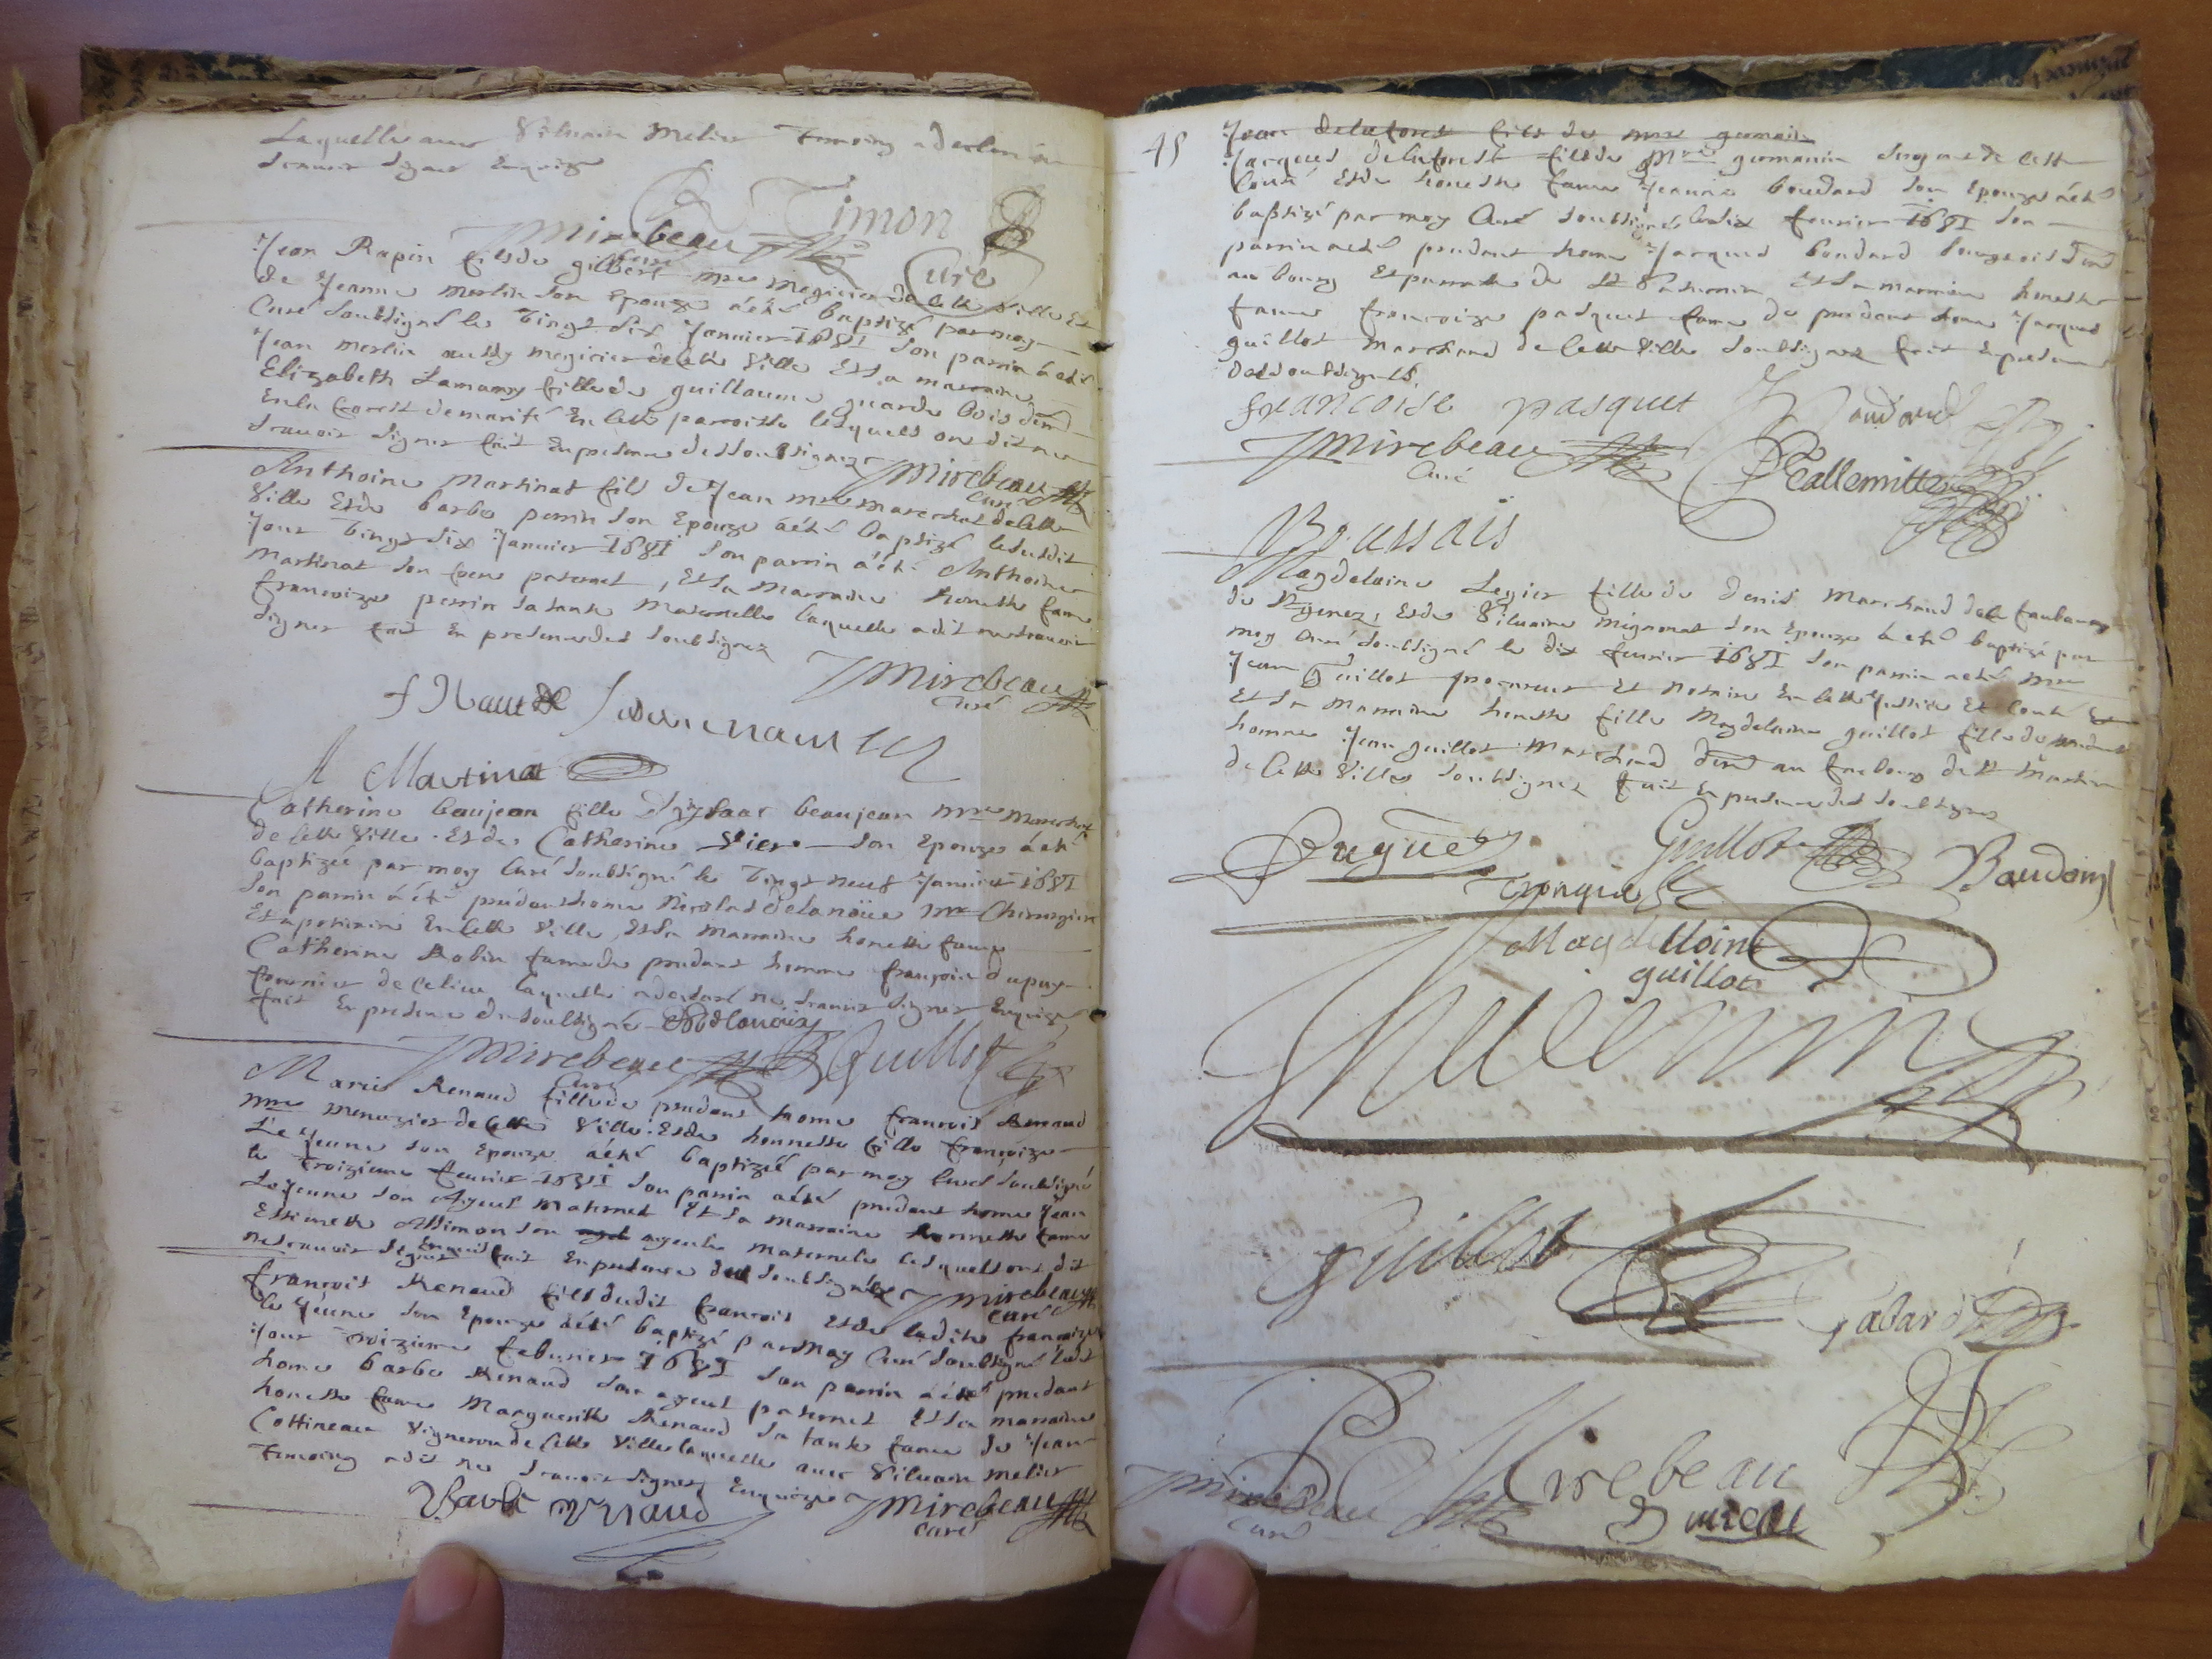 Laquelle avec Silvain Melier temoing a declaré ne
scavoir signer Enquize
Timon
Mirebeau
Curé
Curé
Jean Rapin fils de gilbert mre megicier de cette Ville Et
de Jeanne Merlin son Epouze a été baptizé par moy
Curé soubsigné le vingt six Janvier 1681 son parrin a été
Jean Merlin aussy megicier de cette Ville Et sa marraine
Elizabeth Lamamy fille de guillaume guarde bois demt
En la forest de marité En cette parroisse lesquels ont dit ne
scavoir signer fait En presence des soubsignez
Mirebeau
Curé
Anthoine Martinat fils de Jean mre mareschal de cette
Ville Et de barbe perrin son Epouze a été baptizé le susdit
Jour vingt six Janvier 1681 son parrin a été Anthoine
Martinat son frere paternel, Et sa Marraine honeste fame
francoize perrin sa tante Maternelle laquelle a dit ne scavoir
signer fait En presence des soubsignez
Mirebeau
Curé
A Martinat
Catherine baujean fille d'Izaac beaujean mre mareschal
de cette Ville Et de Catherine Vier son Epouze a été
baptizée par moy Curé soubsigné le vingt neuf Janvier 1681
son parrin a été prudent home Nicolas delanoüe mre Chirurgien
Et apoticaire En cette Ville, Et sa Marraine honeste fame
Catherine Robin fame de prudent homme françois dupuy
fournier de ce lieu laquelle a declaré ne scavoir signer Enquize
fait En presence des soubsigné
Mirebeau Guillot
Curé
Marie Renaud fille de prudent home françois Renaud
mre menuzier de cette Ville Et de honneste fille françoize
Le Jeune son Epouze a été baptizée par moy Curé soubsigné
le troizieme fevrier 1681 son parrin a été prudent home Jean
LeJeune son Ayeul maternel Et sa Marraine honneste fame
Estiennette Assimon son ayeule maternele lesquels ont dit
ne scavoir signer Enquis fait En presence des soubsignez
Mirebeau
Curé
françois Renaud fils dudit françois Et de ladite françoize
le Jeune son Epouze a été baptizé par Moy Curé soubsigné ledit
Jour troizieme febvrier 1681 son parrin a été prudent
home barbe Renaud son ayeul paternel Et sa marraine
honeste fame Margueritte Renaud sa tante fame de Jean
Cottineau vigneron de cette Ville laquelle avec Silvain melier
temoing a dit ne scavoir signer Enquize
Mirebeau
Curé
45
Jean delaforest fils de mre germain
Jacques delaforest fils de Mre germain sergent de cette
Cour Et de honeste fame Jeanne boudard son Epouze a été
baptizé par moy Curé soubsigné le dix fevrier 1681 son
parrin a été prudent home Jacques boudard bourgeois demt
au bourg Et parroisse de St Saturnin Et sa marraine honeste
fame francoize pasquet fame de prudent home Jacques
guillot Marchand de cette Ville soubsignez fait En presence
des soubsignés
francoise pasquet
Boudard
Mirebeau
Curé
Boussais
Magdelaine Legier fille de Denis Marchand de la faubourg
de St genez, Et de Silvaine mignonat son Epouze a été baptizé par
moy Curé soubsigné le dix fevrier 1681 son parrin a été mre
Jean Guillot procureur Et notaire En cette Justice Et Cour
Et sa Marraine honeste fille Magdelaine guillot fille de prudent
homme Jean guillot Marchand demt au faubourg de St Martin
de cette Ville soubsignez fait En presence des soubsignez
Guillot
Baudoin
Magdelloine
guillot
guillot
Mirebeau
Mirebeau
Curé